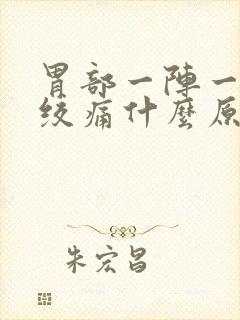 胃部一陣一
绞痛什麼原
朱宏昌